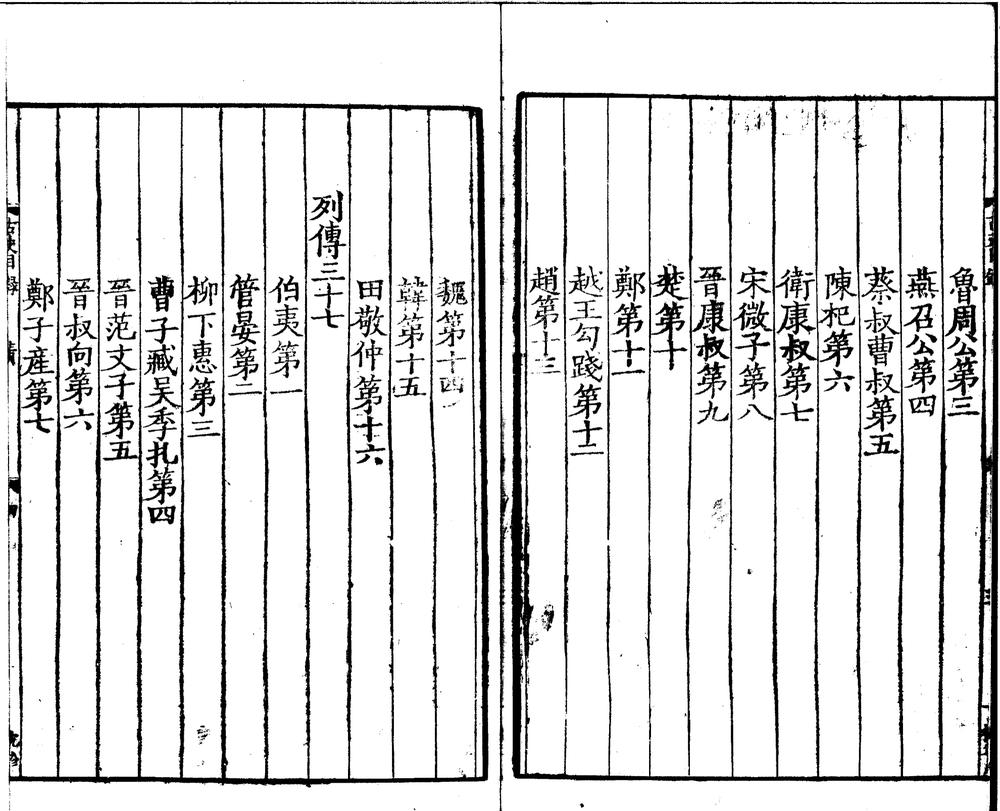 魯周公第三
燕召公第四
蔡叔曹叔第五
陳杞第六
衛康叔第七
宋微子第八
晉康叔第九
楚第十
鄭第十一
越王勾踐第十二
趙第十三
魏第十四
韓第十五
田敬仲第十六
列傳三十七
伯夷第一
管晏第二
柳下惠第三
曹子臧吴季扎第四
晉范文子第五
晉叔向第六
鄭子産第七